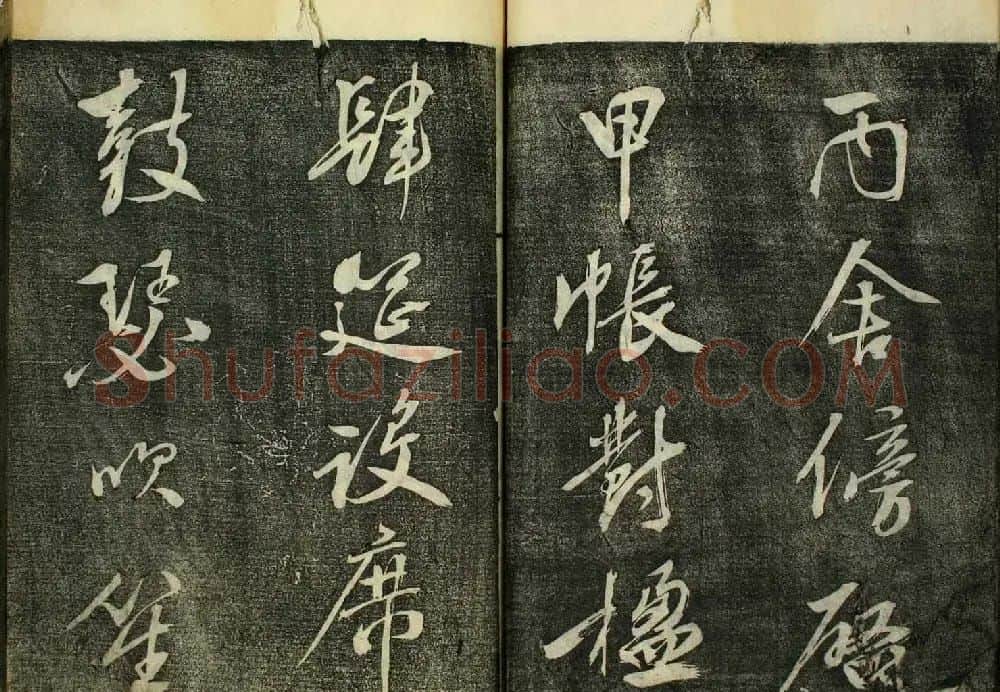 丙舍傍啟
甲帳對楹
肆筵設席
鼓瑟吹笙
Shufaziliao.COM